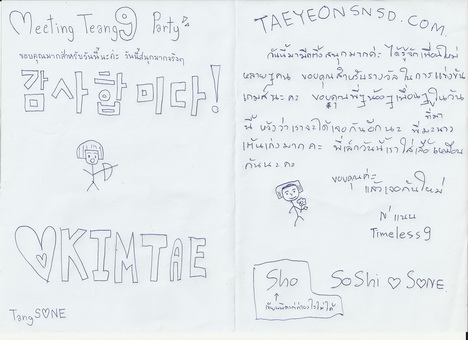 Meeting Teang9 Party
ขอบคุณมากสำหรับวันนี้นะค่ะ วันนี้สนุกมากจริงๆ
감사합미다!
♡KIMTAE
Tang S♡NE
TAEYEONSNSD.COM.
วันนี้มามีตติ้งสนุกมากค่ะ ได้รู้จักเพื่อนใหม่
หลายๆคน ขอบคุณสำหรับรางวัลในการแข่งขัน
เกมส์นะคะ ขอบคุณพี่ๆน้องๆเพื่อนๆในวัน
ที่มา
นี้ หวังว่าเราจะได้เจอกันอีกนะ พี่มะนาว
เต้นเก่งมากคะ
กันนะคะ
ขอบคุณค่ะ
แล้วเจอกันใหม่
N'แนน
Timeless9
Sho SoShi ♡ S♡NE